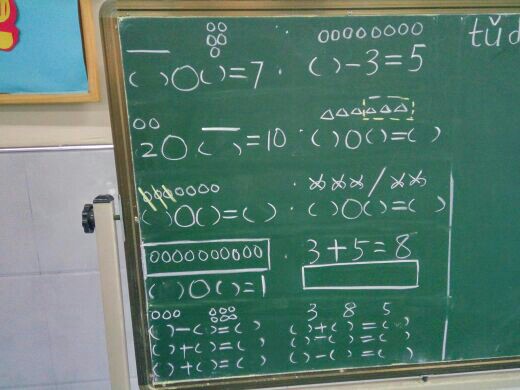 ( )○( )=7 · ( )-3=5
tǔ d
2○( )=10 · ( )○( )=( )
( )○( )=( ) · ( )○( )=( )
· 3+5=8
( )○( )=1
3 8 5
( )-( )=( ) ( )+( )=( )
( )+( )=( ) ( )-( )=( )
( )+( )=( ) ( )-( )=( )